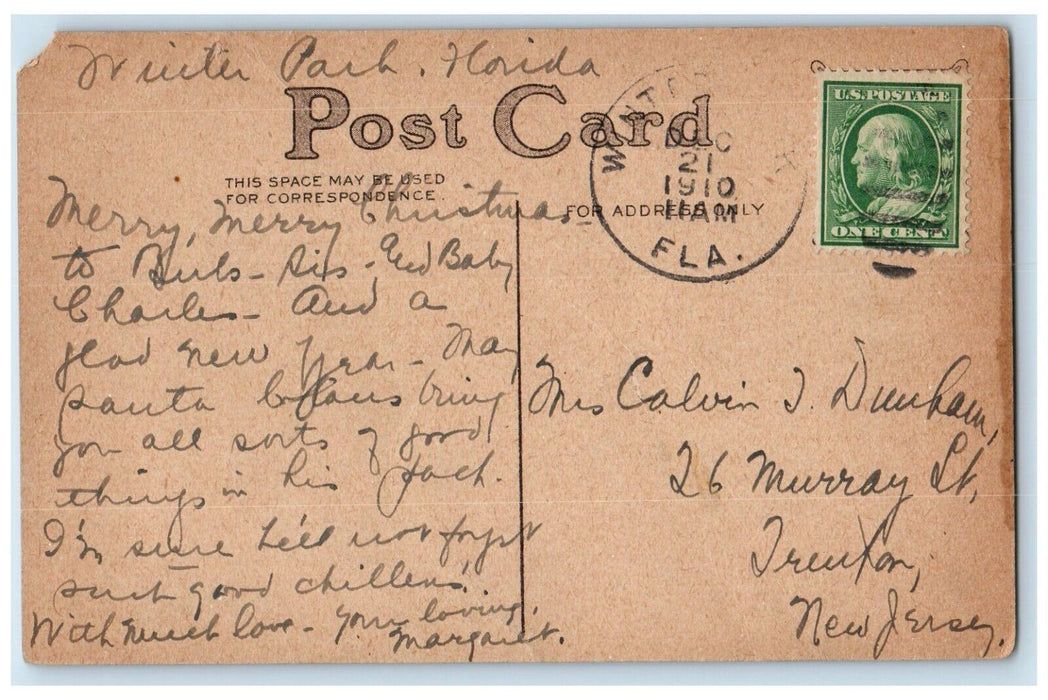 Winter Park, Florida
Post Card
THIS SPACE MAY BE USED
FOR CORRESPONDENCE.
FOR ADDRESS ONLY
WINTER
DEC
21
1910
11 AM
FLA.
U.S. POSTAGE
ONE CENT
Merry, Merry Christmas
to Bubs - Sis - And Baby
Charles - And a
glad New Year - May
Santa Claus bring
you all sorts of good
things in his pack.
I'm sure he'll not forget
such good chillens,
With much love - Your loving,
Margaret.
Mrs Calvin I. Dunham,
26 Murray St,
Trenton,
New Jersey.